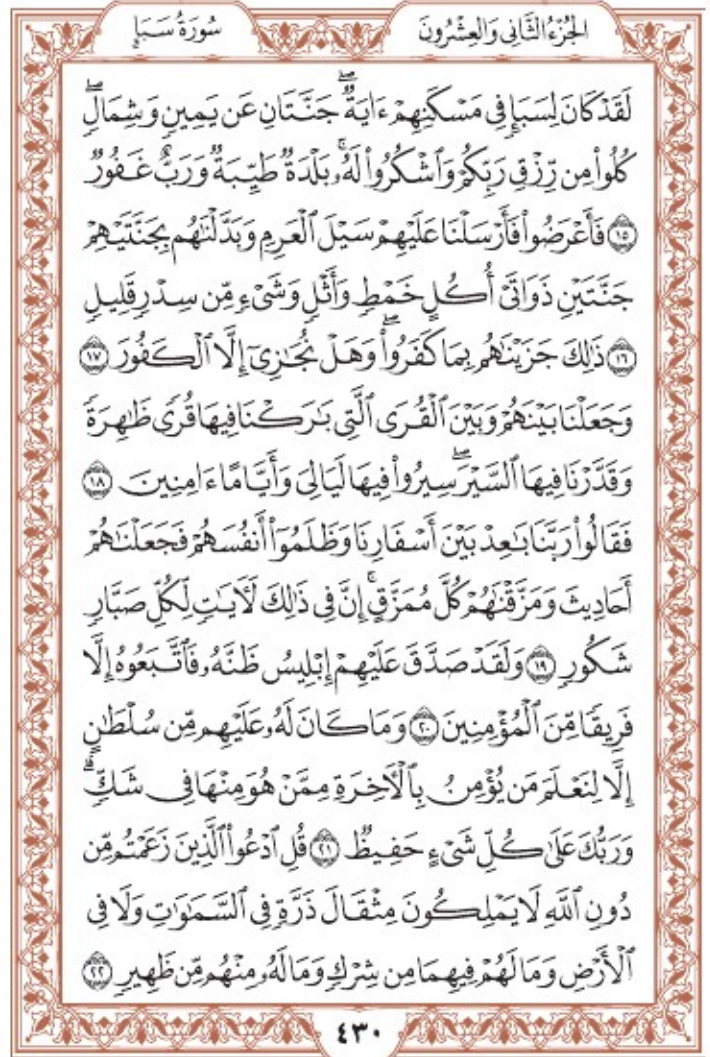 الجُزْءُ الثَّانِي وَالعِشْرُونَ
سُورَةُ سَبَإٍ
لَقَدْ كَانَ لِسَبَإٖ فِي مَسۡكَنِهِمۡ ءَايَةٞۖ جَنَّتَانِ عَن يَمِينٖ وَشِمَالٖۖ
كُلُواْ مِن رِّزۡقِ رَبِّكُمۡ وَٱشۡكُرُواْ لَهُۥۚ بَلۡدَةٞ طَيِّبَةٞ وَرَبٌّ غَفُورٞ
١٥ فَأَعۡرَضُواْ فَأَرۡسَلۡنَا عَلَيۡهِمۡ سَيۡلَ ٱلۡعَرِمِ وَبَدَّلۡنَٰهُم بِجَنَّتَيۡهِمۡ
جَنَّتَيۡنِ ذَوَاتَيۡ أُكُلٍ خَمۡطٖ وَأَثۡلٖ وَشَيۡءٖ مِّن سِدۡرٖ قَلِيلٖ
١٦ ذَٰلِكَ جَزَيۡنَٰهُم بِمَا كَفَرُواْۖ وَهَلۡ نُجَٰزِيٓ إِلَّا ٱلۡكَفُورَ ١٧
وَجَعَلۡنَا بَيۡنَهُمۡ وَبَيۡنَ ٱلۡقُرَى ٱلَّتِي بَٰرَكۡنَا فِيهَا قُرٗى ظَٰهِرَةٗ
وَقَدَّرۡنَا فِيهَا ٱلسَّيۡرَۖ سِيرُواْ فِيهَا لَيَالِيَ وَأَيَّامًا ءَامِنِينَ ١٨
فَقَالُواْ رَبَّنَا بَٰعِدۡ بَيۡنَ أَسۡفَارِنَا وَظَلَمُوٓاْ أَنفُسَهُمۡ فَجَعَلۡنَٰهُمۡ
أَحَادِيثَ وَمَزَّقۡنَٰهُمۡ كُلَّ مُمَزَّقٍۚ إِنَّ فِي ذَٰلِكَ لَأٓيَٰتٖ لِّكُلِّ صَبَّارٖ
شَكُورٖ ١٩ وَلَقَدۡ صَدَّقَ عَلَيۡهِمۡ إِبۡلِيسُ ظَنَّهُۥ فَٱتَّبَعُوهُ إِلَّا
فَرِيقٗا مِّنَ ٱلۡمُؤۡمِنِينَ ٢٠ وَمَا كَانَ لَهُۥ عَلَيۡهِم مِّن سُلۡطَٰنٍ
إِلَّا لِنَعۡلَمَ مَن يُؤۡمِنُ بِٱلۡأٓخِرَةِ مِمَّنۡ هُوَ مِنۡهَا فِي شَكّٖۗ
وَرَبُّكَ عَلَىٰ كُلِّ شَيۡءٍ حَفِيظٞ ٢١ قُلِ ٱدۡعُواْ ٱلَّذِينَ زَعَمۡتُم مِّن
دُونِ ٱللَّهِ لَا يَمۡلِكُونَ مِثۡقَالَ ذَرَّةٖ فِي ٱلسَّمَٰوَٰتِ وَلَا فِي
ٱلۡأَرۡضِ وَمَا لَهُمۡ فِيهِمَا مِن شِرۡكٖ وَمَا لَهُۥ مِنۡهُم مِّن ظَهِيرٖ ٢٢
٤٣٠